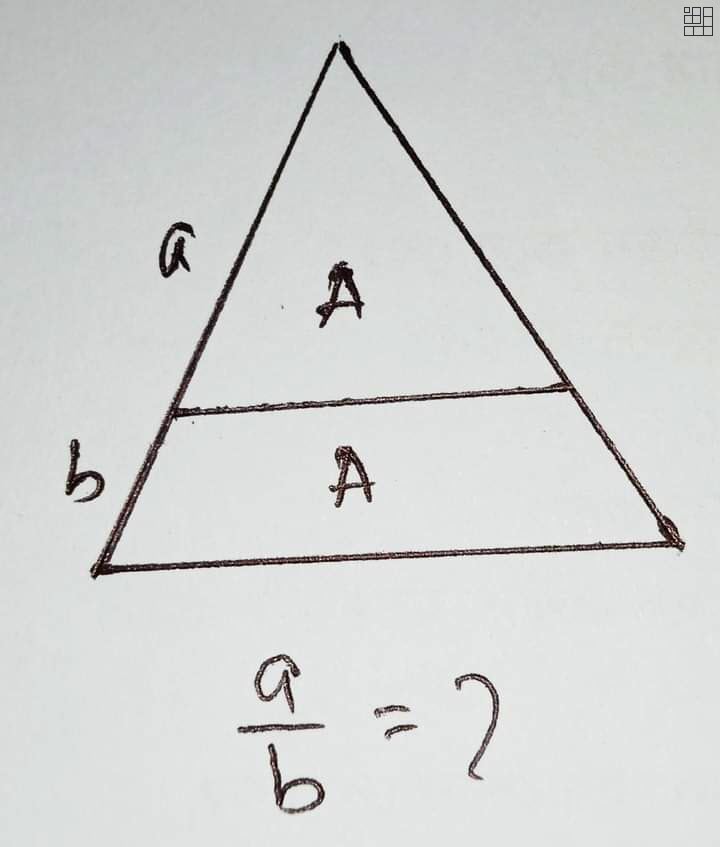 a
A
b
A
a/b = ?